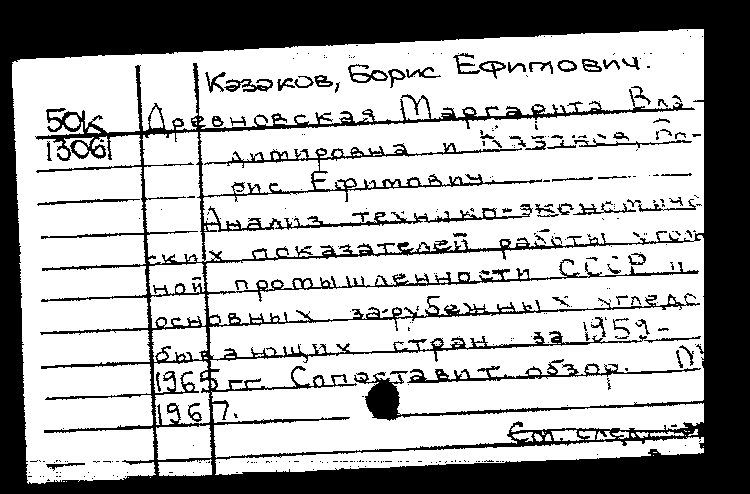 Казаков, Борис Ефимович.
50к Древновская Маргарита Вла-
13061 димировна и Казаков, Бо-
рис Ефимович.
Анализ технико-экономиче
ских показателей работы уголь
ной промышленности СССР и
основных зарубежных угледо
бывающих стран за 1959-
1965 гг. Сопоставит. обзор. М
1967.
См. след. кар